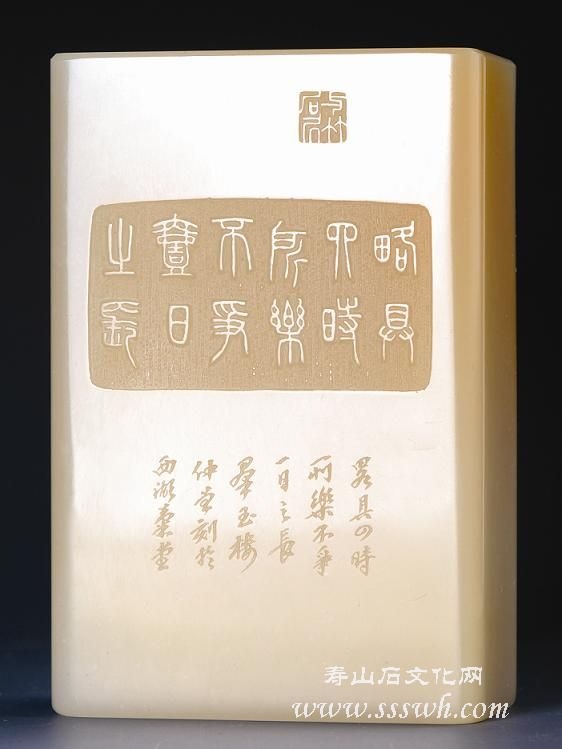 略具
四時
所樂
不爭
壹日
之長
畧具四時
所樂不爭
一日之長
羣玉樓
仲 刻於
西湖 堂
寿山石文化网
www.ssswh.com